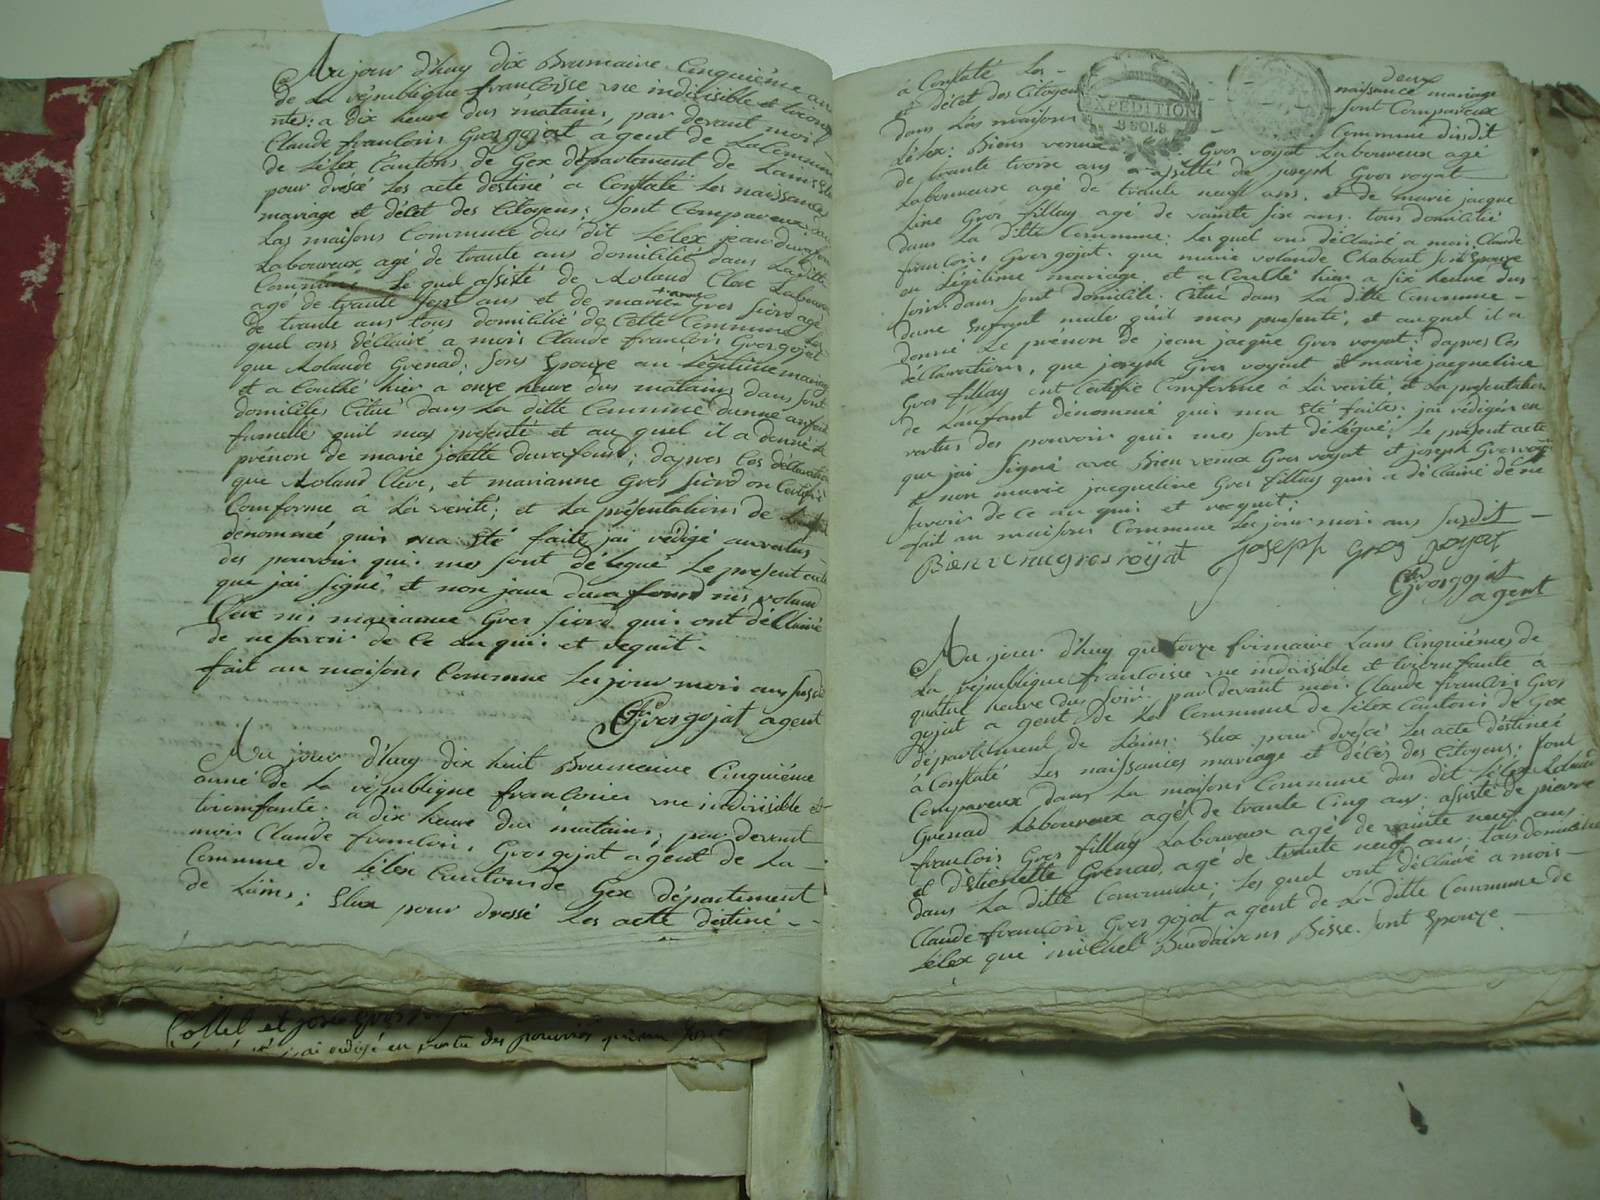 Au jour d'huy dix Brumaire Cinquiéme an
de la république francloisse une indivisible et trionf
ntes: a dix heure dus matains, par devant moi
Claude francloris Grosgojat agent de la Commune
de Lélex Cantons de Gex département de Lains
pour dresé les acte déstiné a Constaté les naissances
mariage et décet des Citoyens: sont Compareux
Las maisons Commune dus dit Lélex jean duraford
Laboureux agé de trante ans domicilié dans La ditte
Commune Le quel assisté de Roland Clerc Laboureux
agé de trante sept ans et de marie anne Gros fiord agé
de trante ans tous domicilié de Cette Commune
quel ons déclairé a mois Claude francloris Grosgojat
que Rolande Grenad: sons Epouze an Légitime mariage
et a Couché hier a onze heure dus matains dans sont
domiciles Citué dans La ditte Commune dunne anfant
fumelle quil mas presenté et au quel il a donné Le
prénon de marie josette duraford; dapres Cés déclaration
que Roland Clerc, et marianne Gros fiord on Certifié
Comforme á La vérité; et La présentations de
dénommé quis ma Eté faite jai rédigé anvertus
des pouvoir qui mes sont délégué Le présent acte
que jai signé et non jean duraford nis roland
Clerc nis marianne Gros fiord quis ont déClairé
de ne savoir de Ce an quis et requit.
fait au maisons Commune Les jour mois ans susdit
Grosgojat agent
Au jour d'huy dix huit Brumaire Cinquiéme
anné de la république francloise une indivisible et
triomfante: a dix heure dus matains; par devent
mois Claude francloris Grosgojat agent de La
Commune de Lélex Cantons de Gex département
de Lains; Elux pour dressé Les acte déstiné
á Constaté Les naissance mariage
et décet des Citoyens sont Compareux
dans Las maisons Commune dusdit
Lélex: Biens venux Gros royat Laboureux agé
de trante troix ans assisté de joseph Gros royat
Laboureux agé de trante neuf ans, et de marie jacque
line Gros fillay agé de vainte six ans. tous domicilié
dans La ditte Commune: Les quel ons déClairé a mois Claude
francloris Grosgojat. que marie rolande Chabout sont Epouze
en Légitime mariage et a Couché hier a six heure dus
soir dans sont domicile. Citué dans La ditte Commune
dune Enfant male quil mas presenté, et auquel il a
donné Le prénon de jean jacque Gros royat: dapres Ces
déclarations, que joseph Gros royat et marie jacqueline
Gros fillay ont Certifié Comforme á La vérité et La présentation
de Lanfant dénommé quis ma Eté faite: jai rédigér en
vertus des pouvoir quis mes sont délégué, Le présent acte
que jai signé avec Bien venux Gros royat et joseph Gros royat
et non marie jacqueline Gros fillay quis a déClairé de ne
savoir de Ce an quis et requit;
fait au maisons Commune Les jour mois ans susdit
Bien venu gros royat Joseph Gros royat
Grosgojat
agent
Au jour d'huy quatorze frimaire Lans Cinquiémes de
La république francloise une indivisible et triomfante á
quatre heure dus soir. par devant mois Claude francloris Gros
gojat agent de La Commune de Lélex Cantons de Gex
département de Lains: Elux pour dréssé Les acte déstineé
á Constaté Les naissances mariage et décès des Citoyens: sont
Compareux dans La maisons Commune dus dit Lélex Rolland
Grénad Laboureux agé de trante Cinq ans. assisté de pierre
francloris Gros fillay Laboureux agé de vainte neuf ans
et déstienette Grénad agé de trante neuf ans. tous domicilié
dans La ditte Commune: Les quel ont déclairé a mois
Claude francloris Gros gojat agent de La ditte Commune de
Lélex que michel Burdairons Bisse. sont Epouze
EXPEDITION
8 SOLS
Collet et
ai redigé en vertu des pouvoirs qui me sont